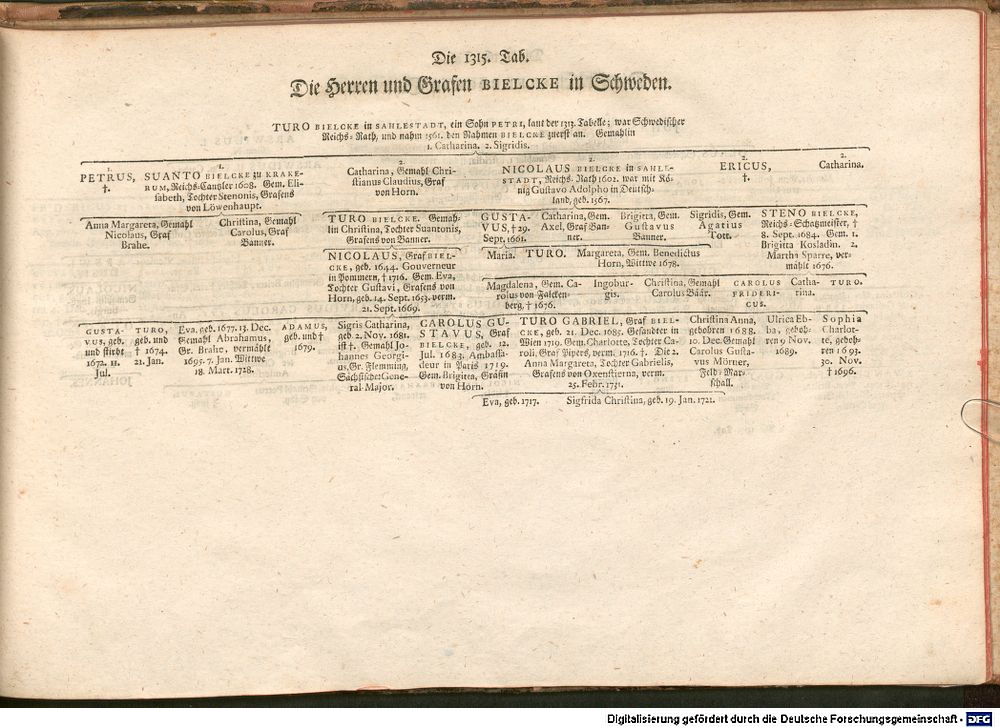 Die 1315. Tab.
Die Herren und Grafen BIELCKE in Schweden.
TURO BIELCKE in SAHLESTADT, ein Sohn PETRI, laut der 1313. Tabelle; war Schwedischer
Reichs-Rath, und nahm 1561. den Nahmen BIELCKE zuerst an. Gemahlin
1. Catharina. 2. Sigridis.
1.
PETRUS,
†.
1.
SUANTO BIELCKE zu KRAKE-
RUM, Reichs-Cantzler 1608. Gem. Eli-
sabeth, Tochter Stenonis, Grafens
von Löwenhaupt.
2.
Catharina, Gemahl Chri-
stianus Claudius, Graf
von Horn.
2.
NICOLAUS BIELCKE in SAHLE-
STADT, Reichs-Rath 1602. war mit Kö-
nig Gustavo Adolpho in Deutsch-
land, geb. 1567.
2.
ERICUS,
†.
2.
Catharina.
Anna Margareta, Gemahl
Nicolaus, Graf
Brahe.
Christina, Gemahl
Carolus, Graf
Banner.
TURO BIELCKE. Gemah-
lin Christina, Tochter Suantonis,
Grafens von Banner.
GUSTA-
VUS, † 29.
Sept. 1661.
Catharina, Gem.
Axel, Graf Ban-
ner.
Brigitta, Gem.
Gustavus
Banner.
Sigridis, Gem.
Agatius
Tott.
STENO BIELCKE,
Reichs-Schatzmeister, †
8. Sept. 1684. Gem. 1.
Brigitta Kosladin. 2.
Martha Sparre, ver-
mählt 1676.
NICOLAUS, Graf BIEL-
CKE, geb. 1644. Gouverneur
in Pommern, † 1716. Gem. Eva,
Tochter Gustavi, Grafens von
Horn, geb. 14. Sept. 1653. verm.
21. Sept. 1669.
Maria.
TURO.
Margareta, Gem. Benedictus
Horn, Wittwe 1678.
Magdalena, Gem. Ca-
rolus von Falcken-
berg, † 1676.
Ingobur-
gis.
Christina, Gemahl
Carolus Bäär.
CAROLUS
FRIDERI-
CUS.
Catha-
rina.
TURO.
GUSTA-
VUS, geb.
und stirbt
1672. 11.
Jul.
TURO,
geb. und
† 1674.
21. Jan.
Eva, geb. 1677. 13. Dec.
Gemahl Abrahamus,
Gr. Brahe, vermählt
1695. 7. Jan. Wittwe
18. Mart. 1728.
ADAMUS,
geb. und †
1679.
Sigris Catharina,
geb. 2. Nov. 1681.
ist †. Gemahl Jo-
hannes Georgi-
us, Gr. Flemming,
Sächsischer Gene-
ral-Major.
CAROLUS GU-
STAVUS, Graf
BIELCKE, geb. 12.
Jul. 1683. Ambassa-
deur in Paris 1719.
Gem. Brigitta, Gräfin
von Horn.
TURO GABRIEL, Graf BIEL-
CKE, geb. 21. Dec. 1685. Gesandter in
Wien 1719. Gem. Charlotte, Tochter Ca-
roli, Graf Pipers, verm. 1716. †. Die 2.
Anna Margareta, Tochter Gabrielis,
Grafens von Oxenstierna, verm.
25. Febr. 1731.
Christina Anna,
gebohren 1688.
10. Dec. Gemahl
Carolus Gusta-
vus Mörner,
Feld-Mar-
schall.
Ulrica Eb-
ba, geboh-
ren 9 Nov.
1689.
Sophia
Charlot-
te, geboh-
ren 1693.
30. Nov.
† 1696.
Eva, geb. 1717.
Sigfrida Christina, geb. 19. Jan. 1721.
Digitalisierung gefördert durch die Deutsche Forschungsgemeinschaft - DFG